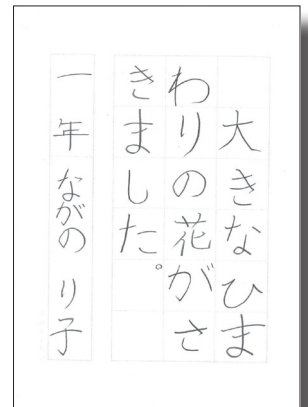 大きなひま
わりの花がさ
きました。
一年 ながの り子